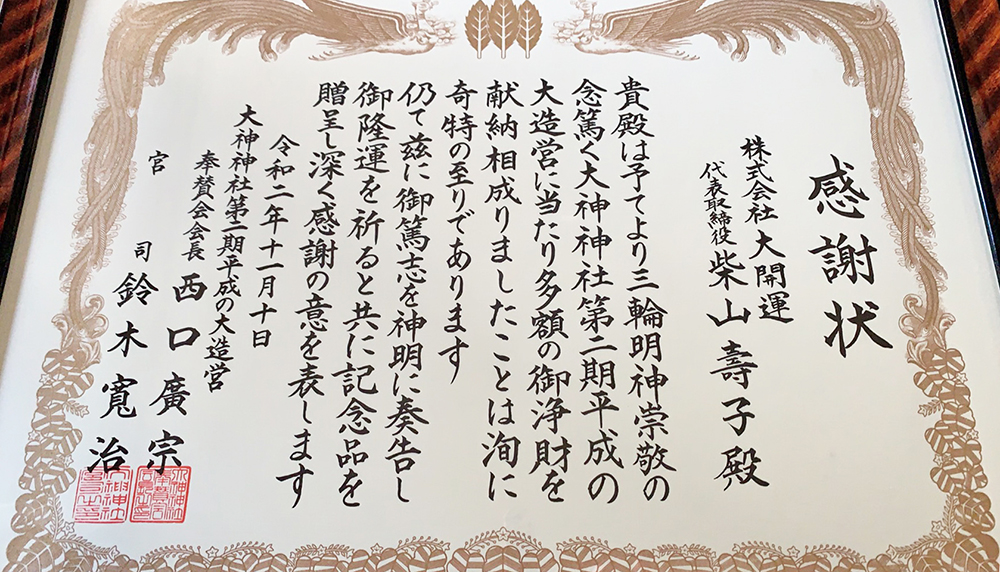 感謝状
株式会社 大開運
代表取締役 柴山壽子殿
貴殿は予てより三輪明神崇敬の
念篤く大神神社第二期平成の
大造営に当たり多額の御浄財を
献納相成りましたことは洵に
奇特の至りであります
仍て茲に御篤志を神明に奏告し
御隆運を祈ると共に記念品を
贈呈し深く感謝の意を表します
令和二年十一月十日
大神神社第二期平成の大造営
奉賛会会長 西口廣宗
宮司 鈴木寛治